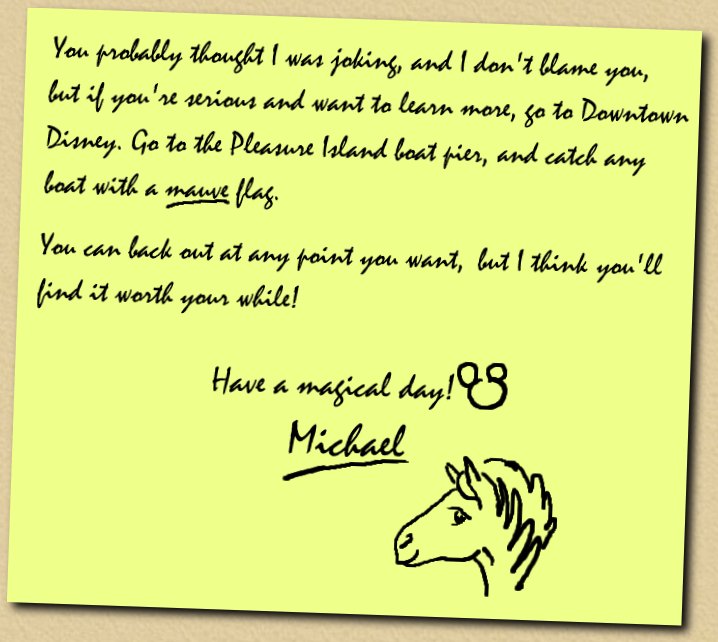 You probably thought I was joking, and I don't blame you,
but if you're serious and want to learn more, go to Downtown
Disney. Go to the Pleasure Island boat pier, and catch any
boat with a mauve flag.
You can back out at any point you want, but I think you'll
find it worth your while!
Have a magical day!
Michael